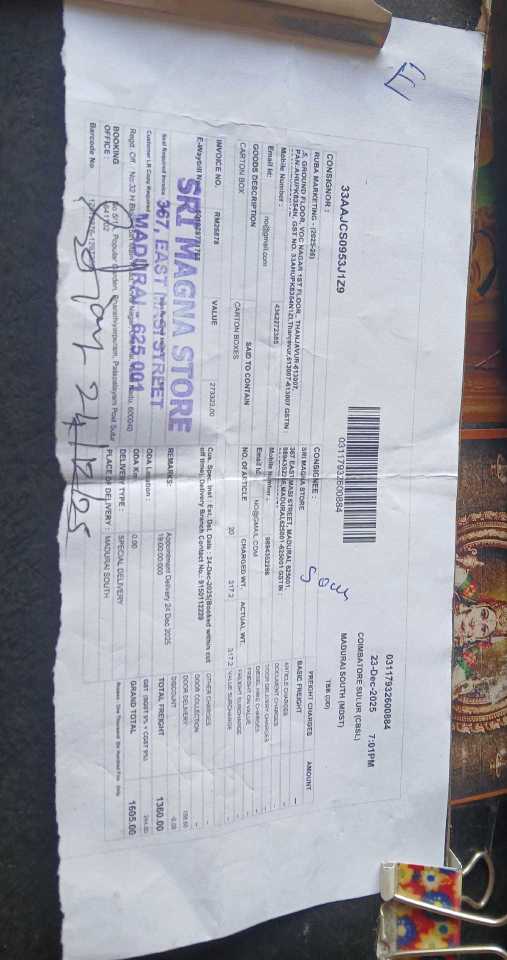 33AAJCS0953J1Z9
03117932600884
03117932600884
23-Dec-2025 7:01PM
COIMBATORE SULUR (CBSL)
MADURAI SOUTH (MDST)
TBB (DD)
CONSIGNOR :
RUBA MARKETING - (2025-26)
5, GROUND FLOOR, VOC NAGAR 1ST FLOOR,, THANJAVUR-613007,
Mobile Number : 4362272365
Email Id: no@gmail.com
CONSIGNEE :
SRI MAGNA STORE
367 EAST MASI STREET, MADURAI, 625001
Mobile Number : 9894352298
Email Id: NO@GMAIL.COM
GOODS DESCRIPTION SAID TO CONTAIN NO. OF ARTICLE CHARGED WT. ACTUAL WT.
CARTON BOX CARTON BOXES 20 317.2 317.2
INVOICE NO. RM26878 VALUE 273322.00
E-Waybill No
Seal Required Invoice
Customer LR Copy Required
BOOKING OFFICE :
Barcode No
SRI MAGNA STORE
367, EAST MASI STREET
MADURAI - 625 001
Con. Spc. Inst : Ext. Del. Date : 24-Dec-2025(Booked within cut
off time), Delivery Branch Contact No.: 9150112229
REMARKS: Appointment Delivery 24 Dec 2025
19:00:00:000
ODA Location :
ODA Km 0.00
DELIVERY TYPE : SPECIAL DELIVERY
PLACE OF DELIVERY : MADURAI SOUTH
FREIGHT CHARGES AMOUNT
BASIC FREIGHT -
ARTICLE CHARGES -
DOCUMENT CHARGES -
DOOR DELIVERY CHARGES -
DIESEL HIKE CHARGES -
FREIGHT ON VALUE -
FREIGHT SURCHARGE -
VALUE SURCHARGE -
OTHER CHARGES -
DOOR COLLECTION -
DOOR DELIVERY
DISCOUNT
TOTAL FREIGHT 1360.00
GST (SGST 9% + CGST 9%)
GRAND TOTAL 1605.00
24/12/25